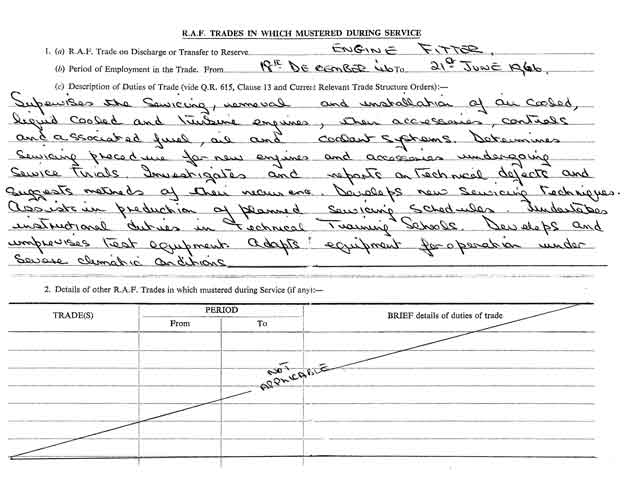 R.A.F. TRADES IN WHICH MUSTERED DURING SERVICE
1. (a) R.A.F. Trade on Discharge or Transfer to Reserve ENGINE FITTER.
(b) Period of Employment in the Trade. From 18TH DECEMBER 46 To 21st JUNE 1966.
(c) Description of Duties of Trade (vide Q.R. 615, Clause 13 and Current Relevant Trade Structure Orders):—
Supervises the Servicing, removal and installation of air cooled,
liquid cooled and turbine engines, their accessories, controls
and associated fuel, oil and coolant systems. Determines
Servicing procedure for new engines and accessories undergoing
Service trials. Investigates and reports on technical defects and
suggests methods of their
Develops new Servicing techniques.
Assists in production of planned servicing schedules. Undertakes
instructional duties in Technical Training Schools. Develops and
improvises test equipment. Adapts equipment for operation under
Severe climatic conditions
2. Details of other R.A.F. Trades in which mustered during Service (if any):—
TRADE(S) PERIOD BRIEF details of duties of trade
From To
NOT
APPLICABLE